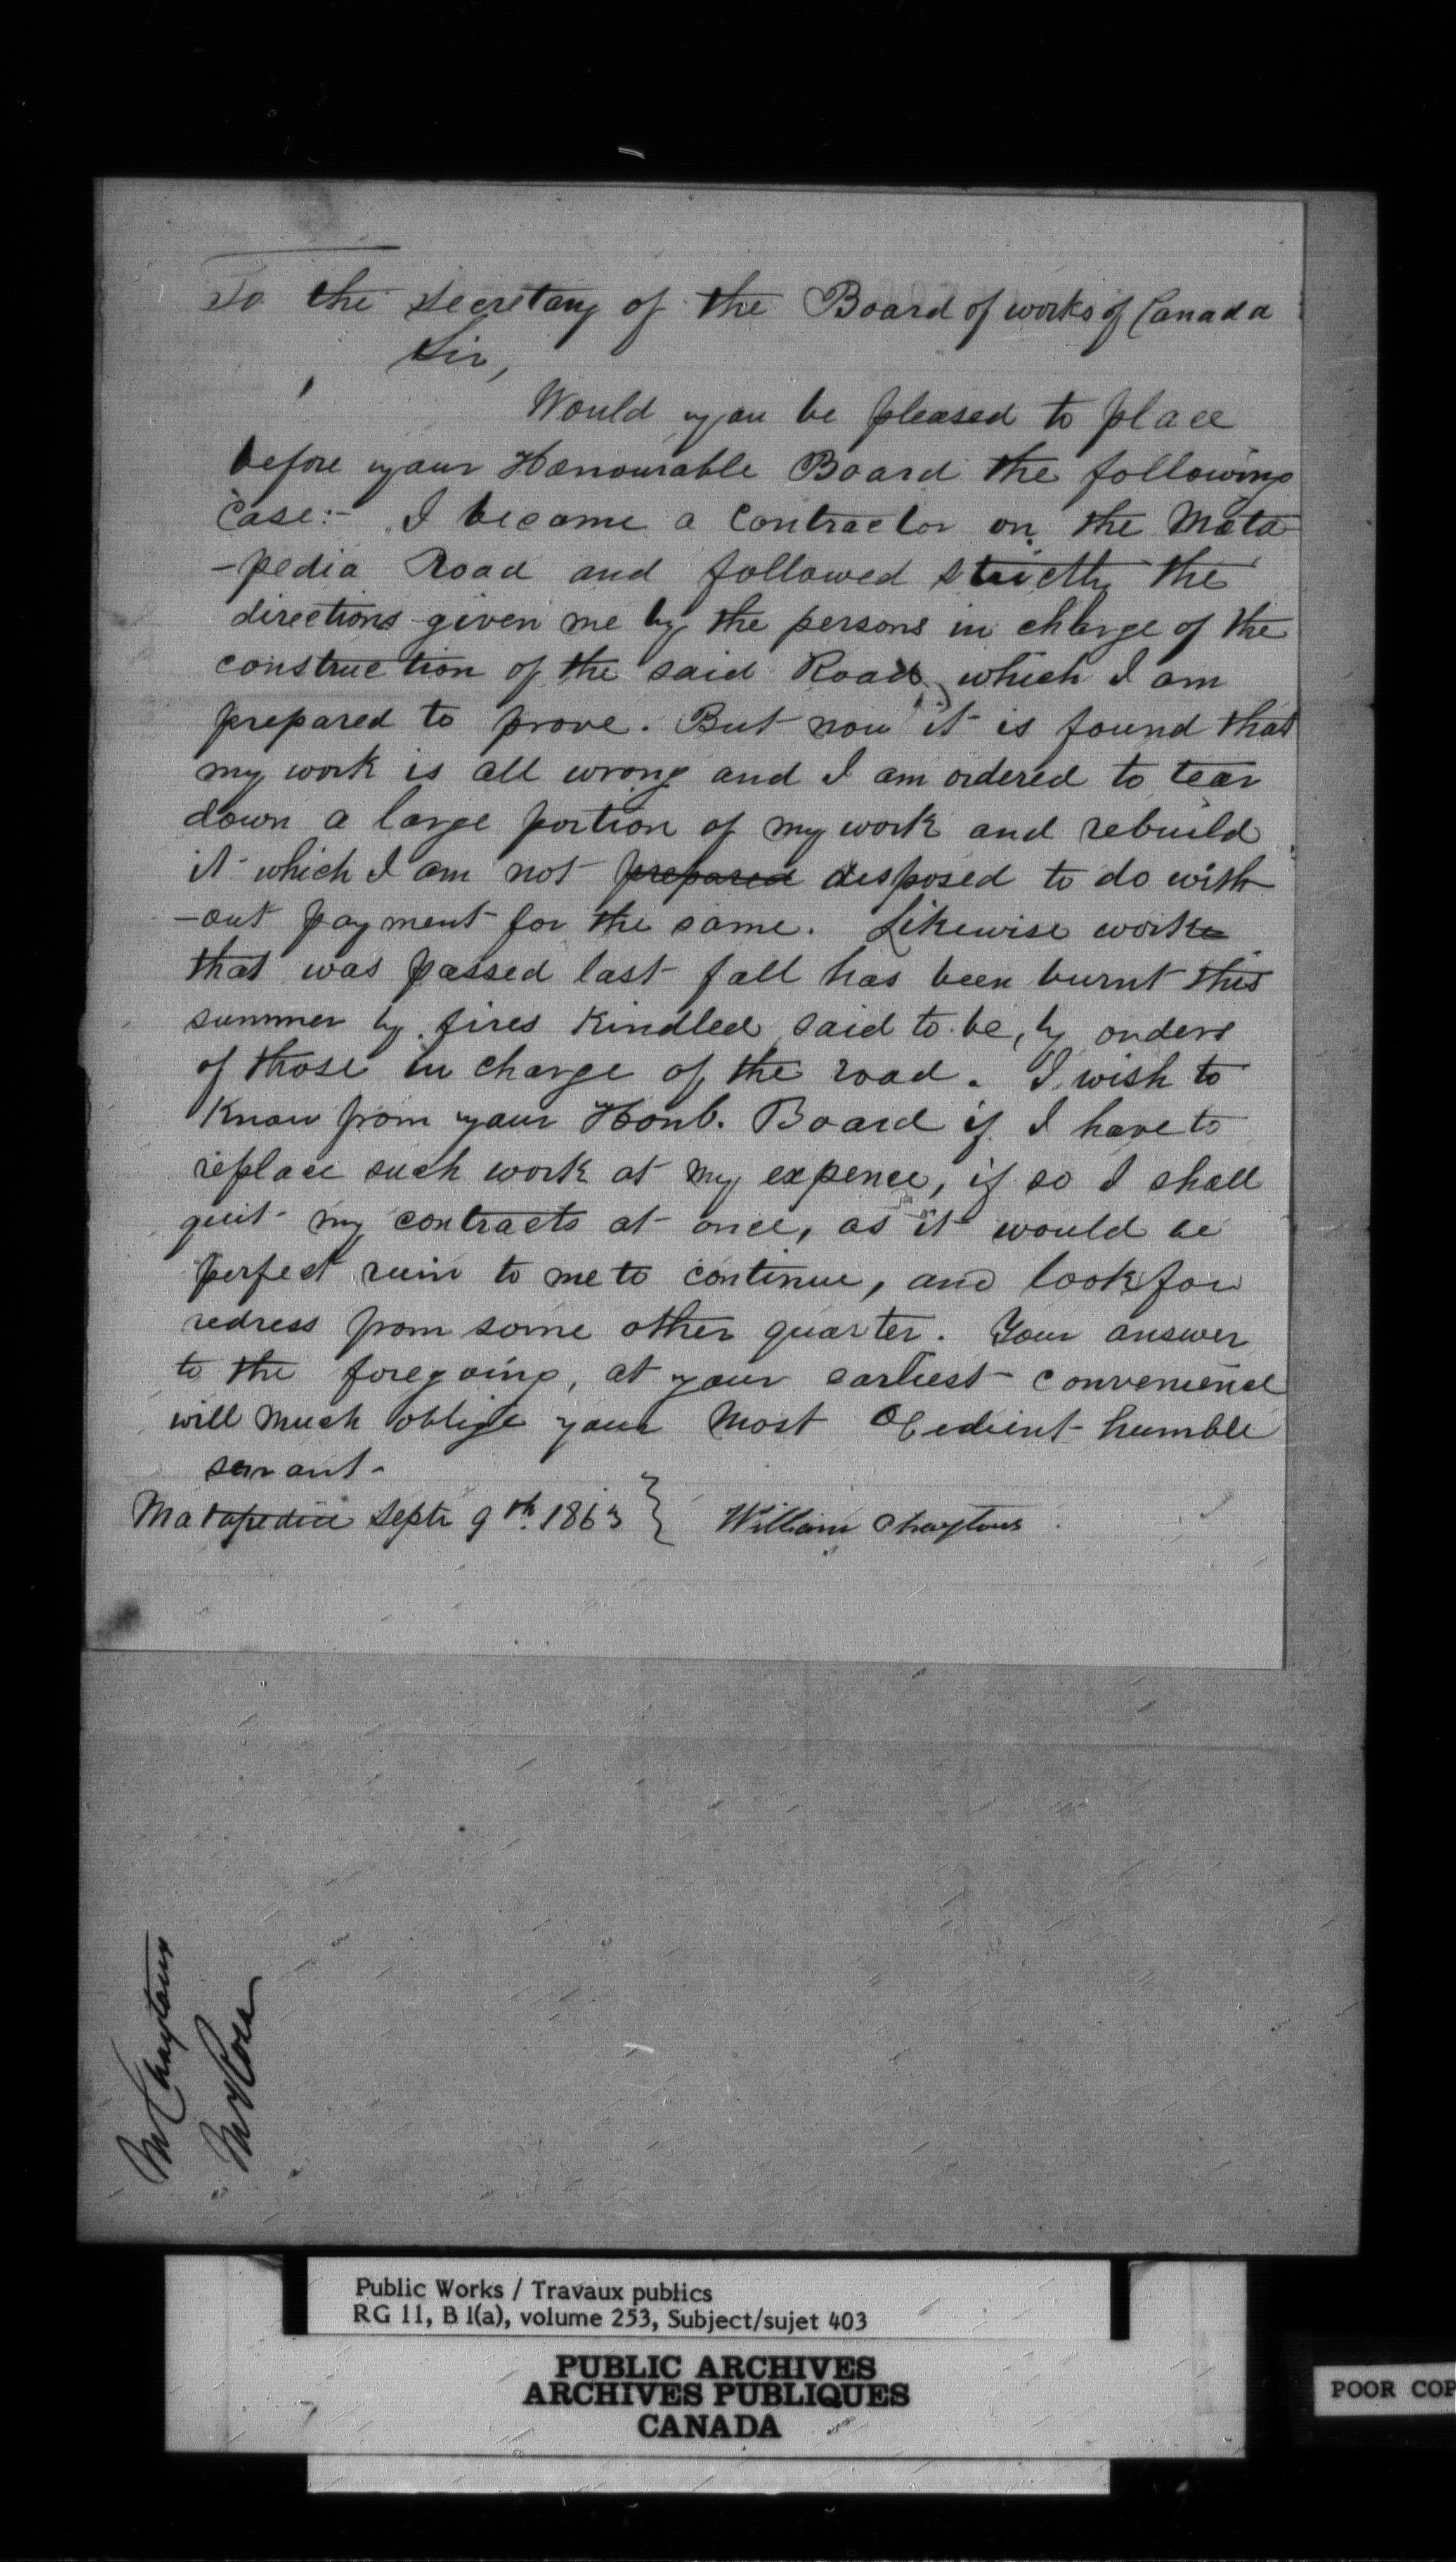 To the Secretary of the Board of works of Canada
Sir,
Would you be pleased to place
before your Honourable Board the following
Case:- I became a Contractor on the Mata
-pedia Road and followed strictly the
directions given me by the persons in charge of the
construction of the said Road, which I am
prepared to prove. But now it is found that
my work is all wrong and I am ordered to tear
down a large portion of my work and rebuild
it which I am not prepared disposed to do with
-out payment for the same. Likewise work
that was passed last fall has been burnt this
summer by fires kindled, said to be, by orders
of those in charge of the road. I wish to
Know from your Honb. Board if I have to
replace such work at my expence, if so I shall
quit my contracts at once, as it would be
perfect ruin to me to continue, and look for
redress from some other quarter. Your answer
to the foregoing, at your earliest convenience
will much oblige your Most Obedient humble
servant-
Matapedia Septr 9th. 1863 } William Chaytors
Public Works / Travaux publics
RG 11, B 1(a), volume 253, Subject/sujet 403
PUBLIC ARCHIVES
ARCHIVES PUBLIQUES
CANADA
POOR COP